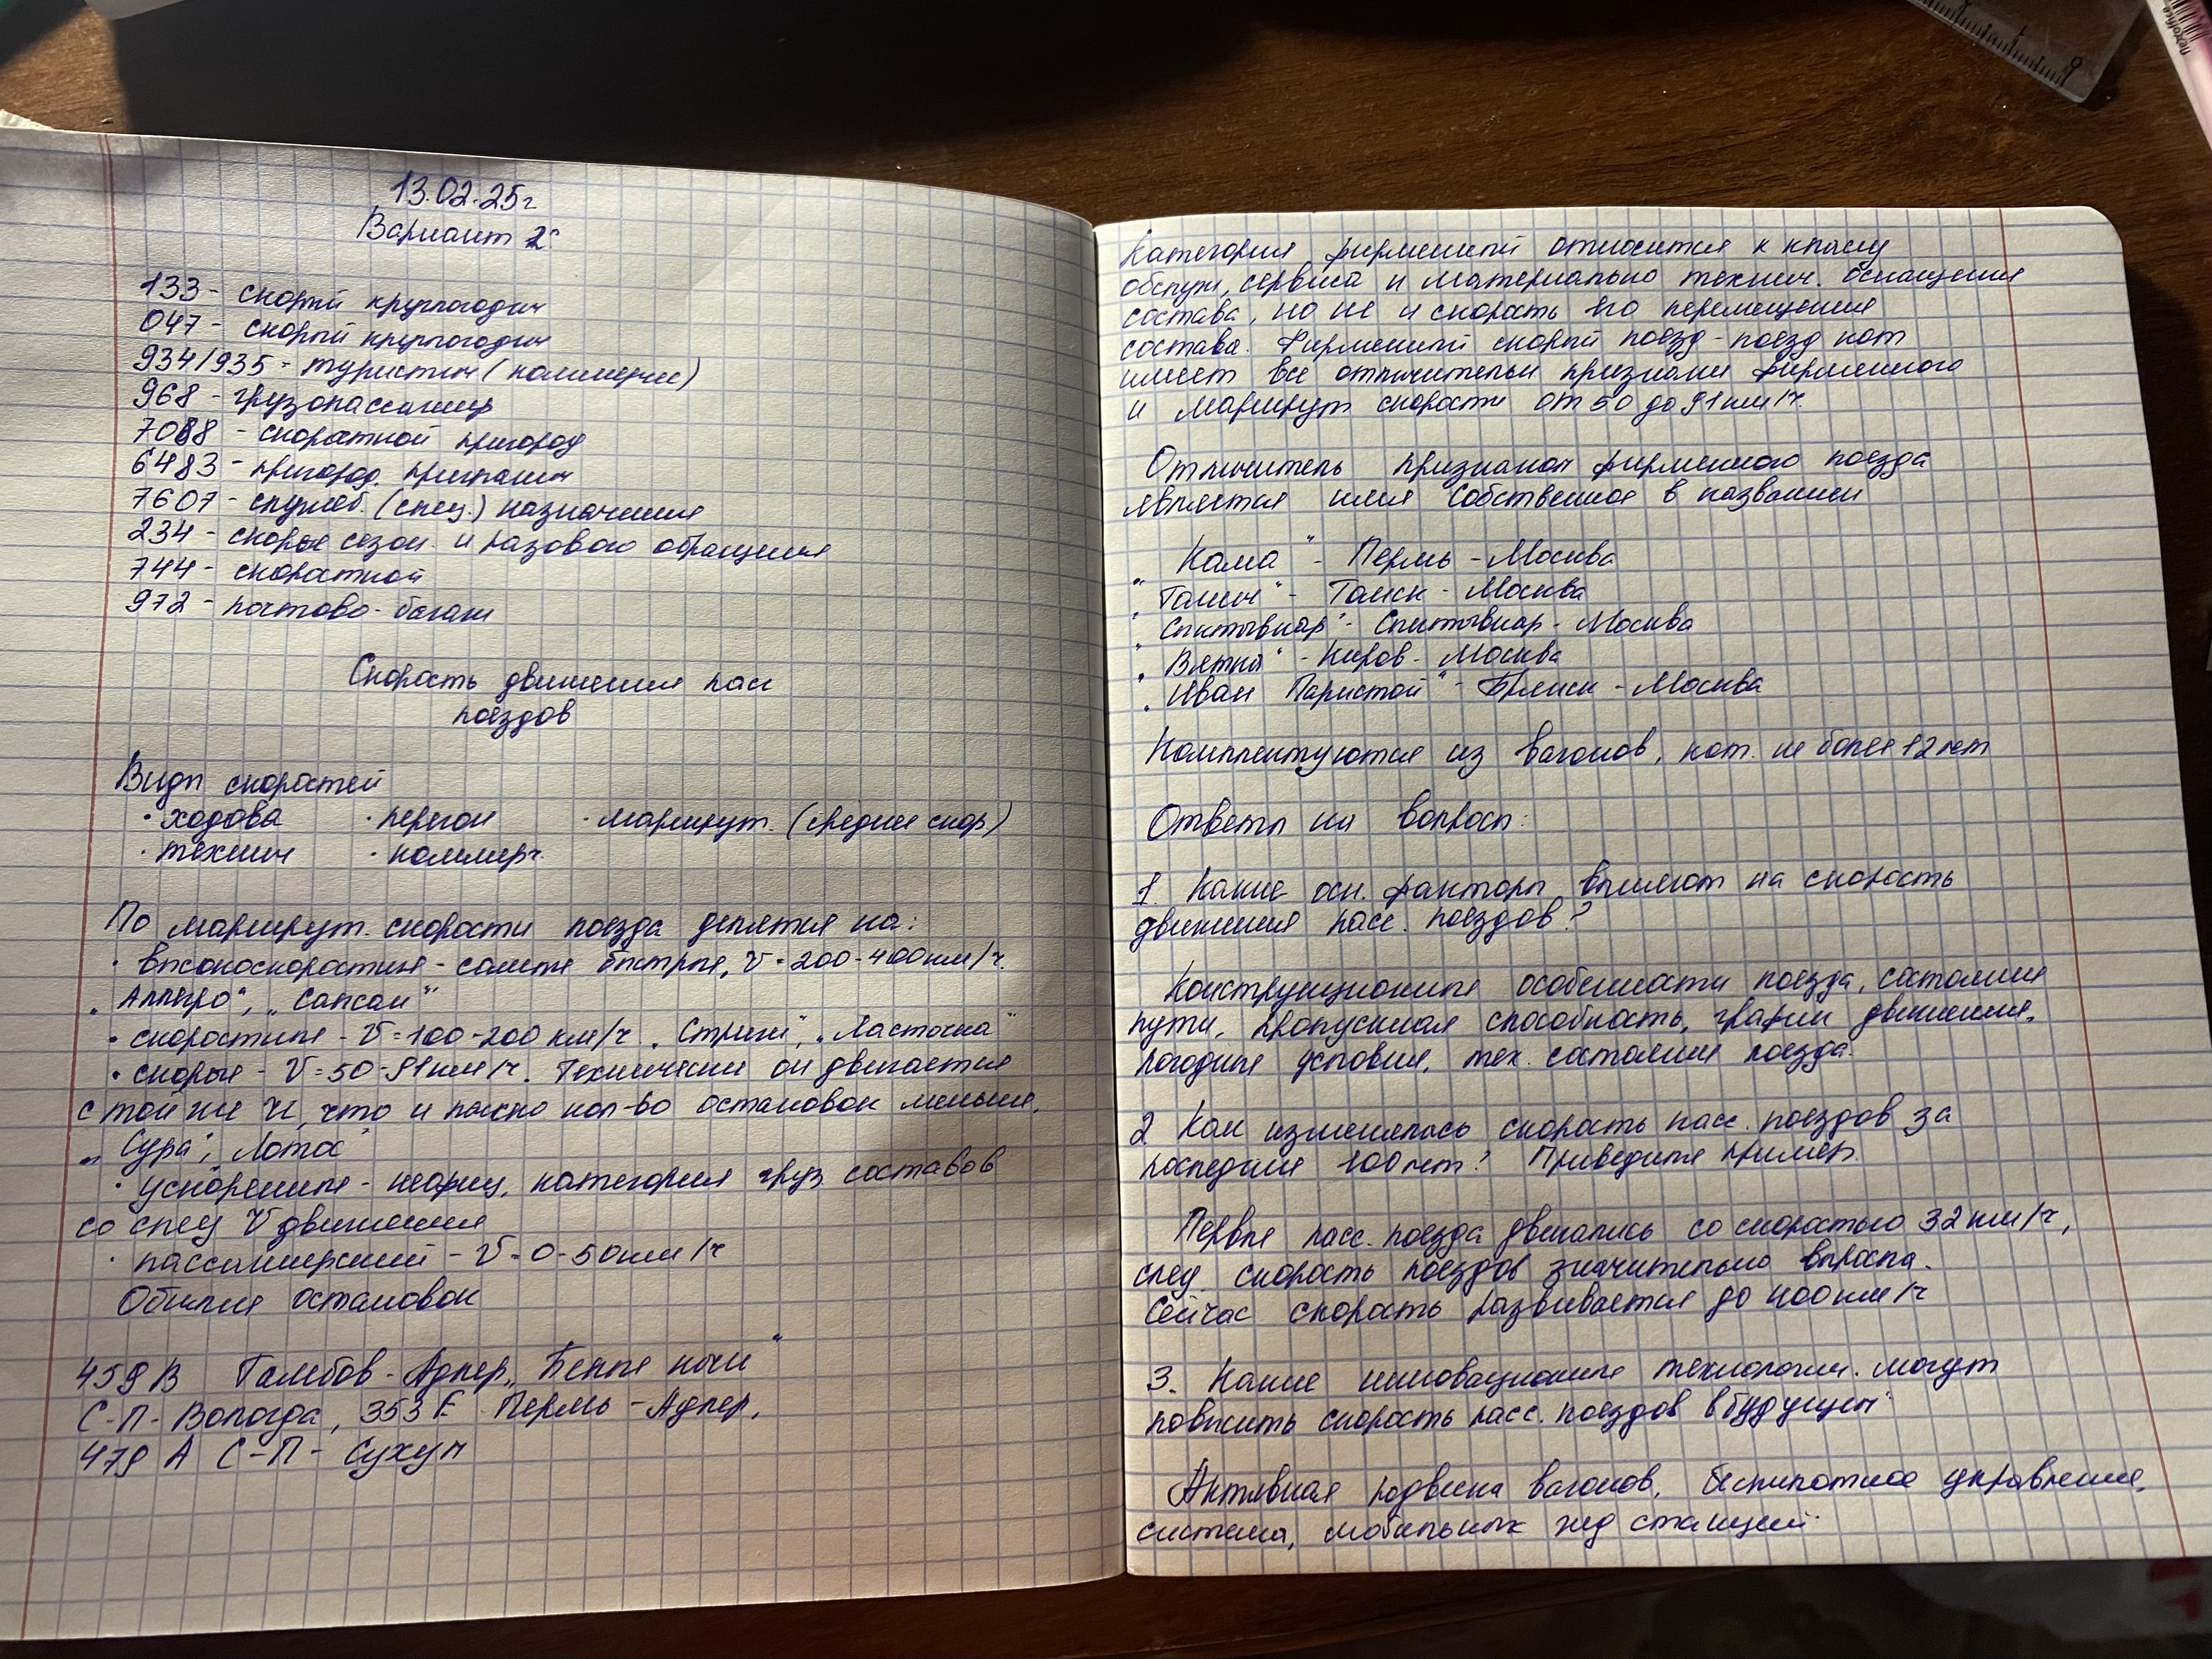 13.02.25г
Вариант 2:
133 - скорый круглогодич
047 - скорый круглогодич
934/935 - туристич (коммерчес)
968 - грузопассажир
7088 - скоростной пригород
6483 - пригород. пригранич
7607 - служеб. (спец.) назначения
234 - скорые сезон. и разового обращения
744 - скоростной
972 - почтово-багаж
Скорость движения пасс
поездов
Виды скоростей
· ходова · перегон · маршрут. (средние скор)
· технич · коммерч.
По маршрут. скорости поезда делятся на:
· высокоскоростные - самые быстрые, V = 200-400км/ч.
„Аллегро", „Сапсан"
· скоростные - V = 100-200 км/ч „Стриж", „Ласточка"
· скорые - V = 50-91км/ч. Технически он двигается
с той же V, что и пасс но кол-во остановок меньше.
„Сура", Лотос"
· ускоренные - неофиц. категория груз составов
со спец V движения
· пассажирский - V = 0-50км/ч
Обилие остановок
459В Тамбов-Адлер, „Белые ночи"
С-П-Вологда, 353Е Пермь-Адлер,
479 А С-П- Сухум
Категория фирменный относится к классу
обслуж, сервиса и материально технич. оснащения
состава, но не и скорость его перемещения
состава. Фирменный скорый поезд - поезд кот
имеет все отличительн признаки фирменного
и маршрут скорости от 50 до 91км/ч.
Отличитель признаком фирменного поезда
является имя собственное в названии
„Кама" - Пермь - Москва
„Томич" - Томск - Москва
„Сыктывкар" - Сыктывкар - Москва
„Вятка" - Киров - Москва
„Иван Паристой" - Брянск - Москва
Комплектуются из вагонов, кот. не более 12 лет
Ответы на вопросы:
1. Какие осн. факторы влияют на скорость
движения пасс. поездов?
Конструкционные особенности поезда, состояние
пути, пропускная способность, график движения,
погодные условия, тех. состояние поезда.
2 Как изменялась скорость пасс. поездов за
последние 100 лет? Приведите пример.
Первые пасс. поезда двигались со скоростью 32 км/ч,
след скорость поездов значительно выросла.
Сейчас скорость развивается до 400 км/ч
3. Какие инновационные технологии. могут
повысить скорость пасс. поездов в будущем.
Активная подвеска вагонов, беспилотное управление,
система, мобильных жд станций.